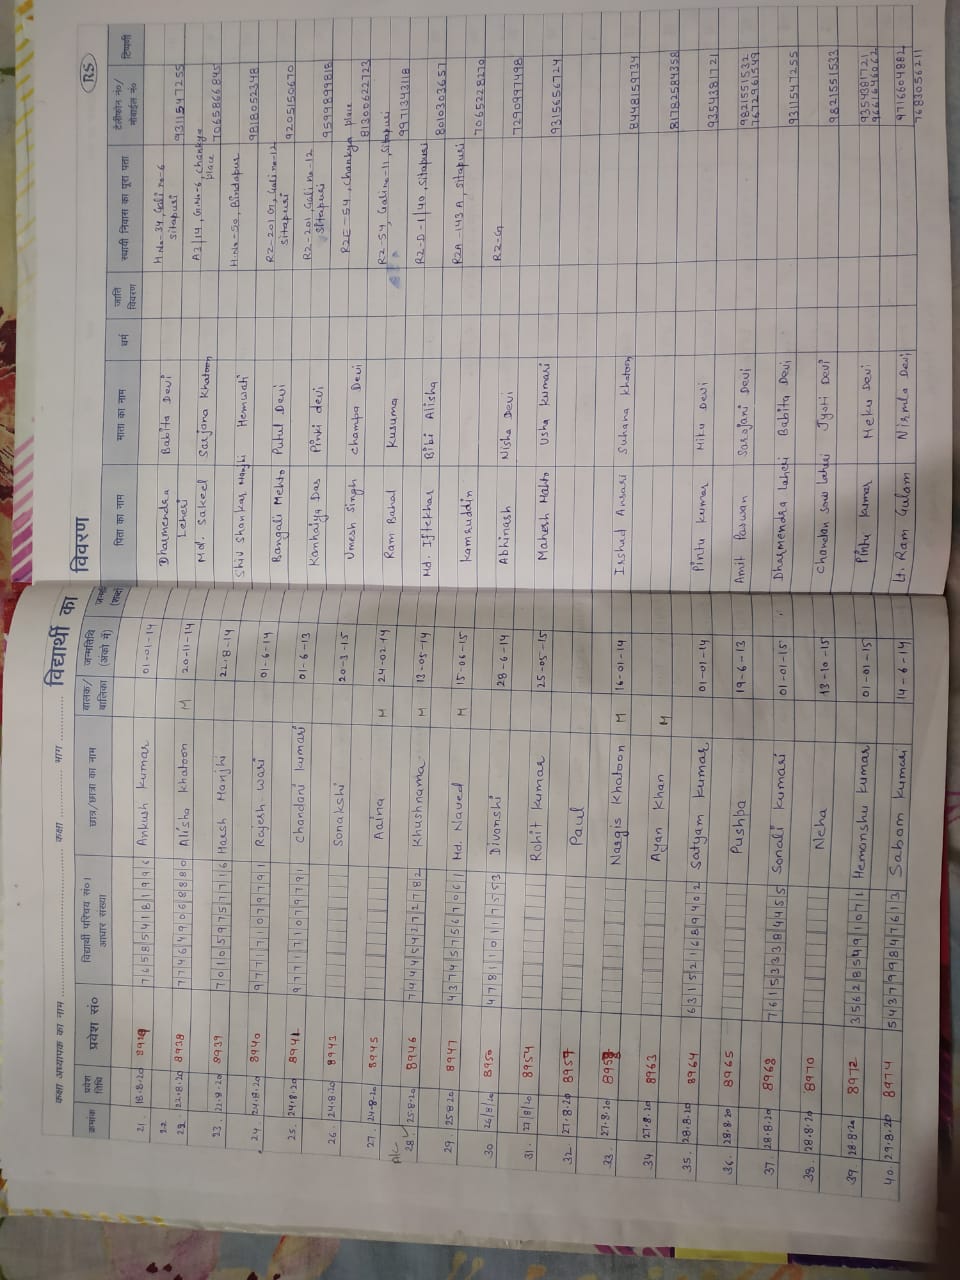 कक्षा अध्यापक का नाम ........ कक्षा ........ भाग ........ विद्यार्थी का विवरण RS
क्रमांक प्रवेश तिथि प्रवेश सं० विद्यार्थी परिचय सं०। आधार संख्या छात्र/छात्रा का नाम बालक/बालिका जन्मतिथि (अंको में) पिता का नाम माता का नाम धर्म जाति विवरण स्थायी निवास का पूरा पता टेलीफोन नं०/मोबाईल नं० टिप्पणी
21. 18.8.20 765854181996 Ankush Kumar 01-01-14 Dharmendra Leheri Babita Devi H.No-34, Gali no-6 Sitapuri 9311547255
22 22.8.20 8938 774649068880 Alisha Khatoon M 20-11-14 Md. Sakeel Sarjana Khatoon A3/14, G.No-6, Chankya place 7065866845
23. 22.8.20 8939 701059757716 Harsh Manjhi 22-8-14 Shiv Shankar Manjhi Hemwati H.No-50, Bindapur 9818052348
24. 24.8.20 8940 977171079791 Rajesh wari 01-6-14 Bangali Mehto Putul Devi RZ-201 G, Gali no-12 Sitapuri 9205150670
25. 24.8.20 8941 977171079791 Chandani Kumari 01-6-13 Kanhaiya Das Pinki devi RZ-201, Gali no-12 Sitapuri 9599899818
26. 24.8.20 8943 Sonakshi 20-3-15 Umesh Singh Champa Devi RZE-54, Chankya place 81300622723
27. 24.8.20 8945 Aaina M 24-02-14 Ram Bahal Kusuma RZ-54, Gali no-11, Sitapuri 9971343118
28. 25.8.20 8946 744454272782 Khushnama M 13-05-14 Md. Iftekhar Bibi Alisha RZ-D-1/40, Sitapuri 8010303657
29. 25.8.20 8947 437457567061 Md. Naved M 15-06-15 Kamruddin RZA-143A, Sitapuri 7065228270
30 26/8/20 8950 478110117553 Divanshi 28-6-14 Abhinash Nisha Devi RZ-G 7290997498
31. 27/8/20 8954 Rohit Kumar 25-05-15 Mahesh Mahto Usha Kumari 9315656724
32. 27.8.20 8957 Paul
33. 27.8.20 Nargis Khatoon M 16-01-14 Irshad Ansari Suhana Khatoon 8448159734
34 27.8.20 8963 Ayan Khan M 81782584358
35. 28.8.20 8964 631521689402 Satyam Kumar 01-01-14 Pintu Kumar Miku Devi 9354381721
36. 28.8.20 8965 Pushpa 19-6-13 Amit Paswan Sarojani Devi 9821551532 7672961549
37. 28.8.20 8968 761533384455 Sonali Kumari 01-01-15 Dharmendra Laheri Babita Devi 9311547255
38. 28.8.20 8970 Neha 13-10-15 Chandan Laheri Jyoti Devi 9821551533
39. 28.8.20 8972 356285491071 Hemanshu Kumar 01-01-15 Pintu Kumar Meku Devi 9354381721 9661646062
40. 29.8.20 8974 543799847613 Sabam Kumari 14-6-14 Lt. Ram Gulam Nirmla Devi 9716604882 7683056211